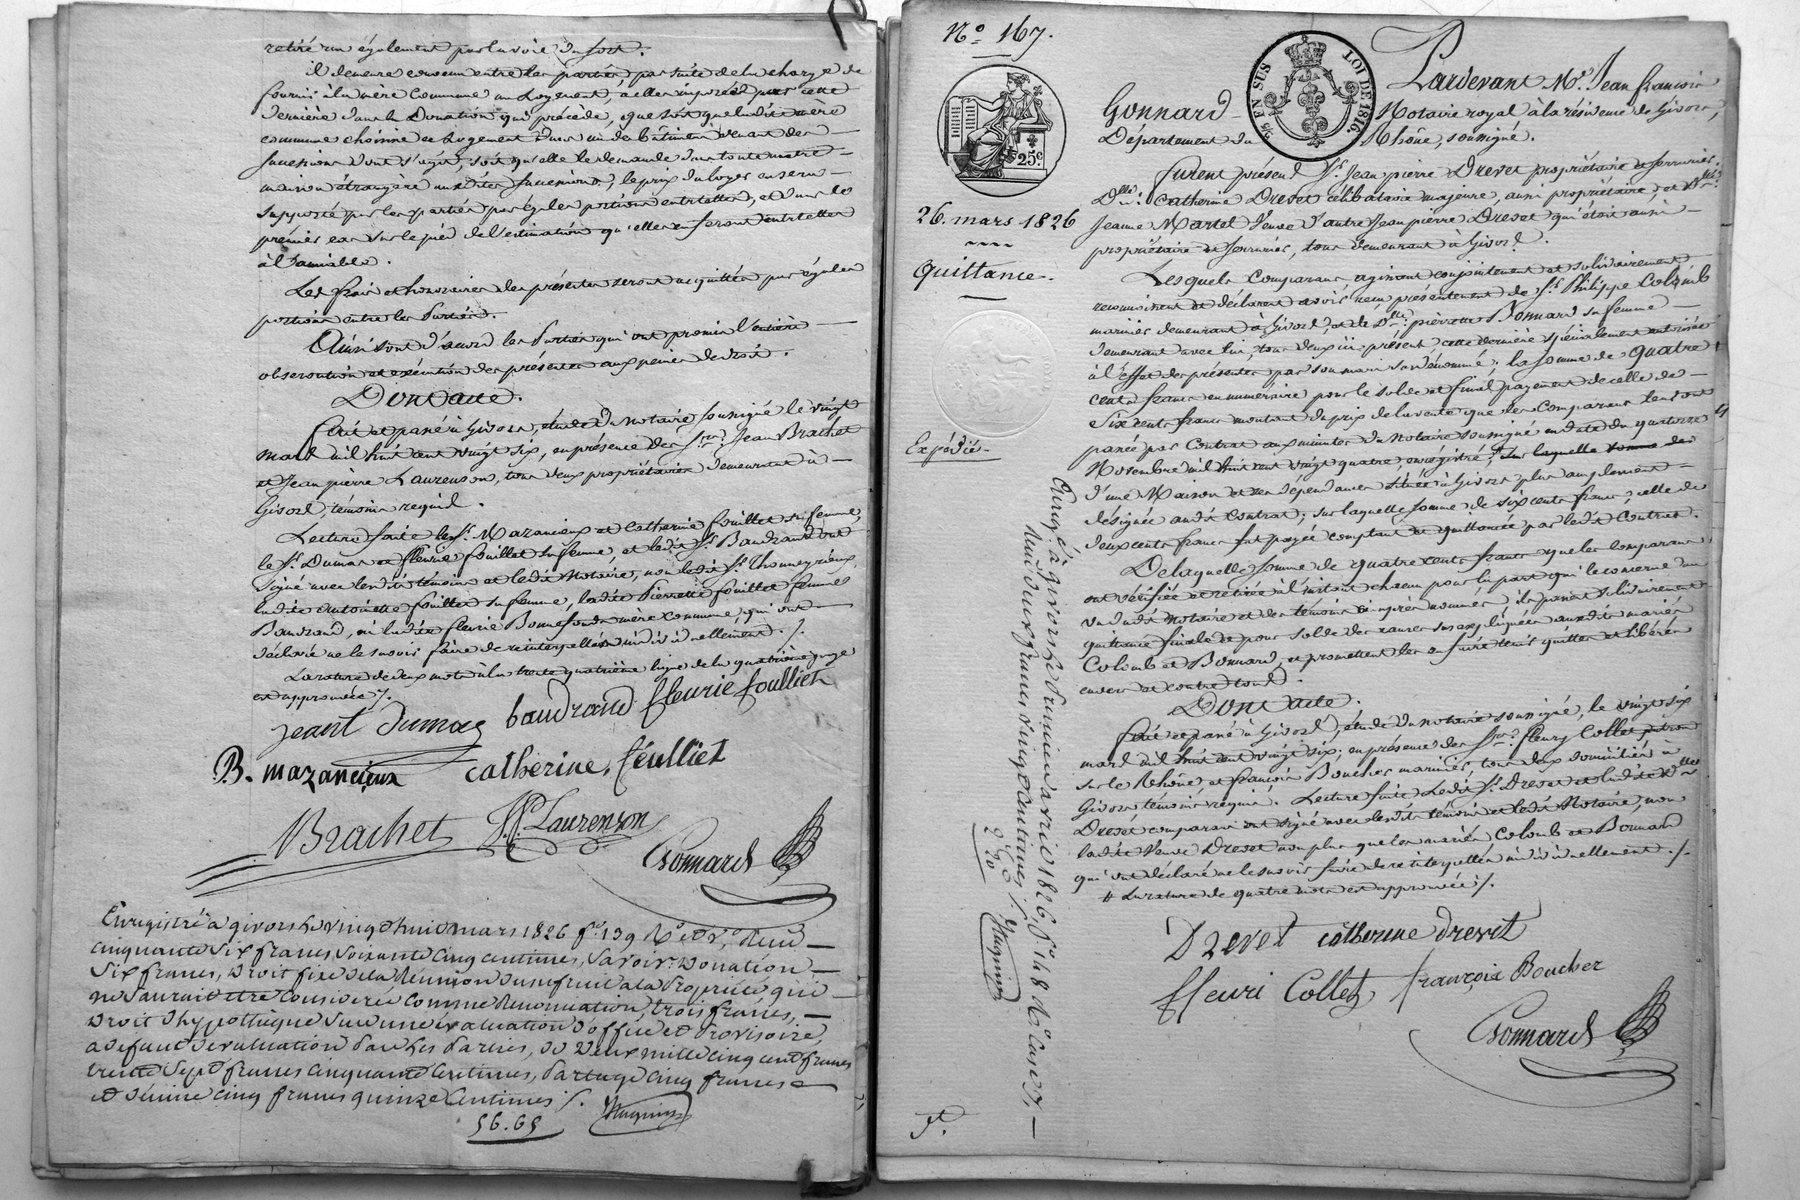 retiré un également par la voie du sort.
il demeure convenu entre les parties, par suite de la charge de
fournir à la mère commune un logement, à elles imposé par cette
dernière dans la Donation qui précède, que soit que ladite mère
commune choisisse ce logement dans un des bâtimens venant des
successions dont s'agit, soit qu'elle le demande dans toute autre
maison étrangère auxdites successions, le prix du loyer en sera
supporté par les parties par égales portions entr'elles, et dans le
premier cas sur le pié de l'estimation qu'elles en feront entr'elles
à l'amiable.
Les frais et honoraires des présentes seront acquittés par égales
portions entre les Parties.
Ainsi sont d'accord les Parties qui ont promis l'entière
observation et exécution des présentes aux peines de droit.
Dont acte.
Fait et passé à Givors, étude du Notaire soussigné le vingt
mars mil huit cent vingt six, en présence des Srs. Jean Brachet
et Jean pierre Laurenson, tous deux propriétaires demeurant à
Givors, témoins requis.
Lecture faite les Sr. Mazancieux et Catherine fouillet sa femme,
le Sr. Dumas et fleurie fouillet sa femme, et ledit Sr. Baudrand ont
signé avec lesdits témoins et ledit Notaire, non ledit Sr.
ladite Antoinette fouillet sa femme, ladite Pierrette fouillet femme
Baudrand, ni ladite fleurie Bonnefond mère commune, qui ont
déclaré ne le savoir faire de ce interpellés individuellement ./.
La rature de deux mots à la trente quatrième ligne de la quatrième page
est approuvée ./.
jeant Dumas baudrand fleurie foulliet
B. mazancieux catherine féulliet
Brachet JP Laurenson
Gonnard
Enregistré à givors le vingt huit mars 1826 fo. 139 Ro. et Vo. Reçu
cinquante six francs soixante cinq centimes, Savoir: Donation
Six francs, Droit fixe de la Réunion d'usufruit à la propriété qui
ne saurait être considéré comme Renonciation, trois francs,
Droit d'hypothèque sur une évaluation d'office et provisoire,
a defaut d'évaluation par les parties, de Deux mille cinq cent francs
trente sept francs cinquante centimes, partage cinq francs
et décime cinq francs quinze centimes ./.
56.65
No. 167.
25c
EN SUS
LOI DE 1816.
26. mars 1826
Quittance.
Expédiée
Pardevant Me. Jean françois
Gonnard Notaire royal à la résidence de Givors,
Département du Rhône, soussigné.
Furent présens Sr. Jean pierre Drevet propriétaire et serrurier,
Dlle. Catherine Drevet célibataire majeure, aussi propriétaire, et
Jeanne Martel Veuve d'autre Jean pierre Drevet qui était aussi
propriétaire et serrurier, tous demeurant à Givors.
Lesquels Comparans agissant conjointement et solidairement
reconnaissent et déclarent avoir reçu présentement de Sr. Philippe Colomb
marinier demeurant à Givors, et de Dlle. pierrette Bonnard sa femme
demeurant avec lui, tous deux ici présens cette dernière spécialement autorisée
à l'effet des présentes par son mari susdénommé; la somme de quatre
cents francs en numéraire pour le solde et final payement de celle de
Six cents francs montant du prix de la vente que les Comparans leur ont
passée par Contrat aux minutes du Notaire soussigné en date du quatorze
Novembre mil huit cent vingt quatre, enregistré,
d'une Maison et ses dépendances située à Givors plus amplement
désignée audit Contrat; sur laquelle somme de six cents francs, celle de
deux cents francs fut payée comptant et quittancée par ledit Contrat.
De laquelle somme de quatre cents francs que les Comparans
ont vérifiée et retirée à l'instant chacun pour la part qui le concerne au
vu dudit Notaire et des témoins ci-après nommés, ils passent solidairement
quittance finale et pour solde des causes sus expliquées auxdits mariés
Colomb et Bonnard, et promettent les en faire tenir quittes et libérés
envers et contre tous.
Dont acte.
Fait et passé à Givors, étude du notaire soussigné, le vingt six
mars mil huit cent vingt six; en présence des Srs. fleury Collet patron
sur le Rhône, et françois Boucher marinier, tous deux domiciliés à
Givors, témoins requis. Lecture faite Ledit Sr. Drevet et ladite Dlle
Drevet comparans ont signé avec lesdits témoins et ledit Notaire, non
ladite Veuve Drevet non plus que les mariés Colomb et Bonnard
qui ont déclaré ne le savoir faire de ce interpellés individuellement ./.
La rature de quatre mots est approuvée ./.
Drevet catherine drevet
fleuri Collet françois Boucher
Gonnard
Enregistré à Givors le premier avril 1826, fo. 148 Ro. Case 7,
Reçu deux francs vingt centimes ./.
2 20